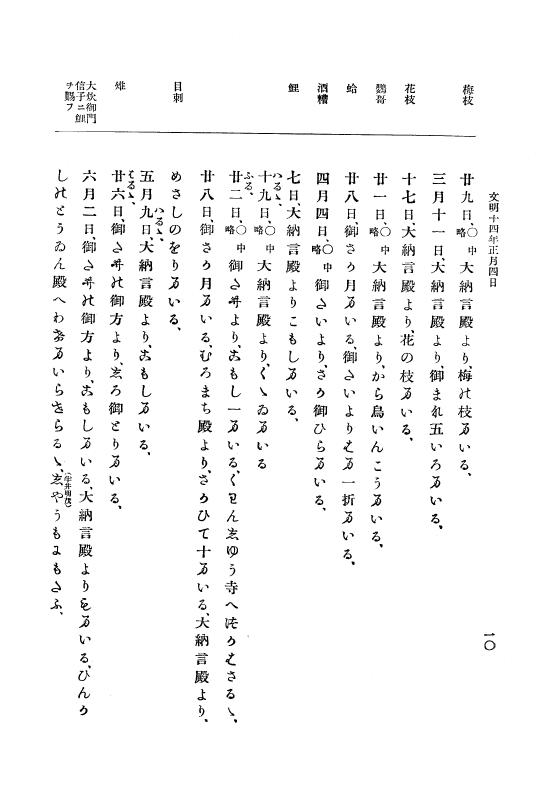 文明十四年正月四日
一〇
梅枝
廿九日、〇中略 大納言殿より、梅の枝まいる、
三月十一日、大納言殿より、御まな五いろまいる、
花枝
十七日大納言殿より、花の枝まいる、
鸚哥
廿一日、〇中略 大納言殿より、から鳥いんこうまいる、
蛤
廿八日、御さか月まいる、御さいよりはま一折まいる、
酒糟
四月四日、〇中略 御さいより、さか御ひらまいる、
鯉
七日、大納言殿よりこもしまいる、
はるゝ、
十九日、〇中略 大納言殿より、くゝゐまいる
ふる、
廿二日、〇中略 御さより、こもし一まいる、くわんしゆう寺へつかはさるゝ、
廿八日、御さか月まいる、むろまち殿より、さかひて十まいる、大納言殿より、
目刺
めさしのをりまいる、
はるゝ、
五月九日、大納言殿より、こもしまいる、
はるゝ、
雉
廿六日、御さの御方より、しろ御とりまいる、
大炊御門信子ニ鯉ヲ賜フ
六月二日、御さの御方より、こもしまいる、大納言殿よりもまいる、ひんか
しのとうゐん殿へわけまいらせらるゝ、しやうもにもたふ、